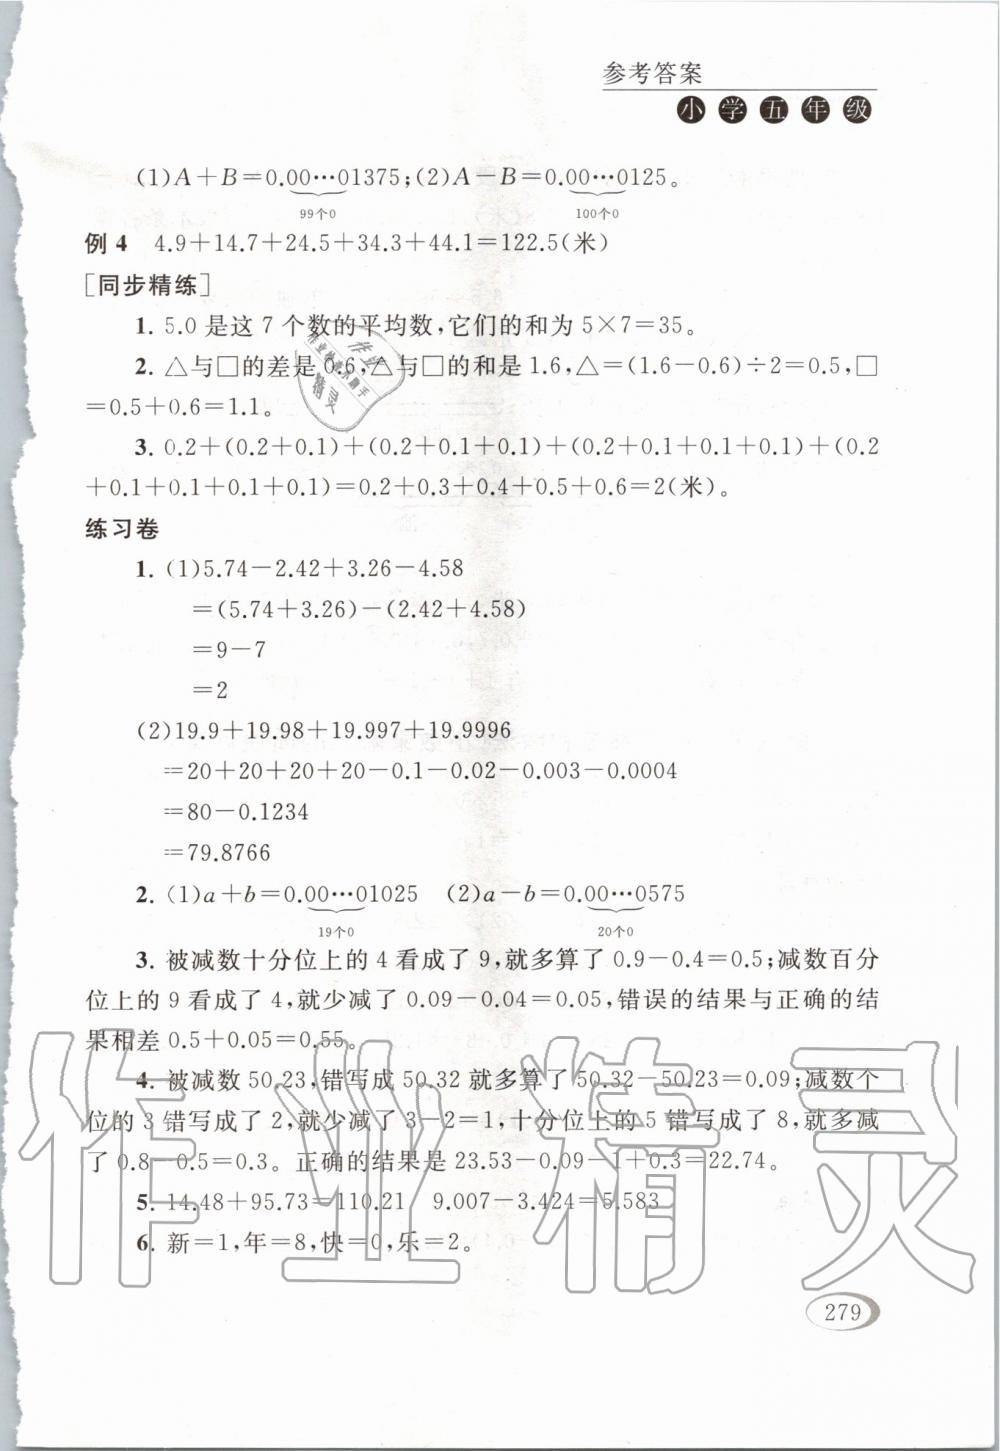 参考答案
小学五年级
(1)A+B=0.00…01375;(2)A-B=0.00…0125。
99个0 100个0
例4 4.9+14.7+24.5+34.3+44.1=122.5(米)
[同步精练]
1. 5.0是这7个数的平均数,它们的和为5×7=35。
2. △与□的差是0.6,△与□的和是1.6,△=(1.6-0.6)÷2=0.5,□
=0.5+0.6=1.1。
3. 0.2+(0.2+0.1)+(0.2+0.1+0.1)+(0.2+0.1+0.1+0.1)+(0.2
+0.1+0.1+0.1+0.1)=0.2+0.3+0.4+0.5+0.6=2(米)。
练习卷
1. (1)5.74-2.42+3.26-4.58
=(5.74+3.26)-(2.42+4.58)
=9-7
=2
(2)19.9+19.98+19.997+19.9996
=20+20+20+20-0.1-0.02-0.003-0.0004
=80-0.1234
=79.8766
2. (1)a+b=0.00…01025 (2)a-b=0.00…0575
19个0 20个0
3. 被减数十分位上的4看成了9,就多算了0.9-0.4=0.5;减数百分
位上的9看成了4,就少减了0.09-0.04=0.05,错误的结果与正确的结
果相差0.5+0.05=0.55。
4. 被减数50.23,错写成50.32就多算了50.32-50.23=0.09;减数个
位的3错写成了2,就少减了3-2=1,十分位上的5错写成了8,就多减
了0.8-0.5=0.3。正确的结果是23.53-0.09-1+0.3=22.74。
5. 14.48+95.73=110.21 9.007-3.424=5.583
6. 新=1,年=8,快=0,乐=2。
279
作业精灵